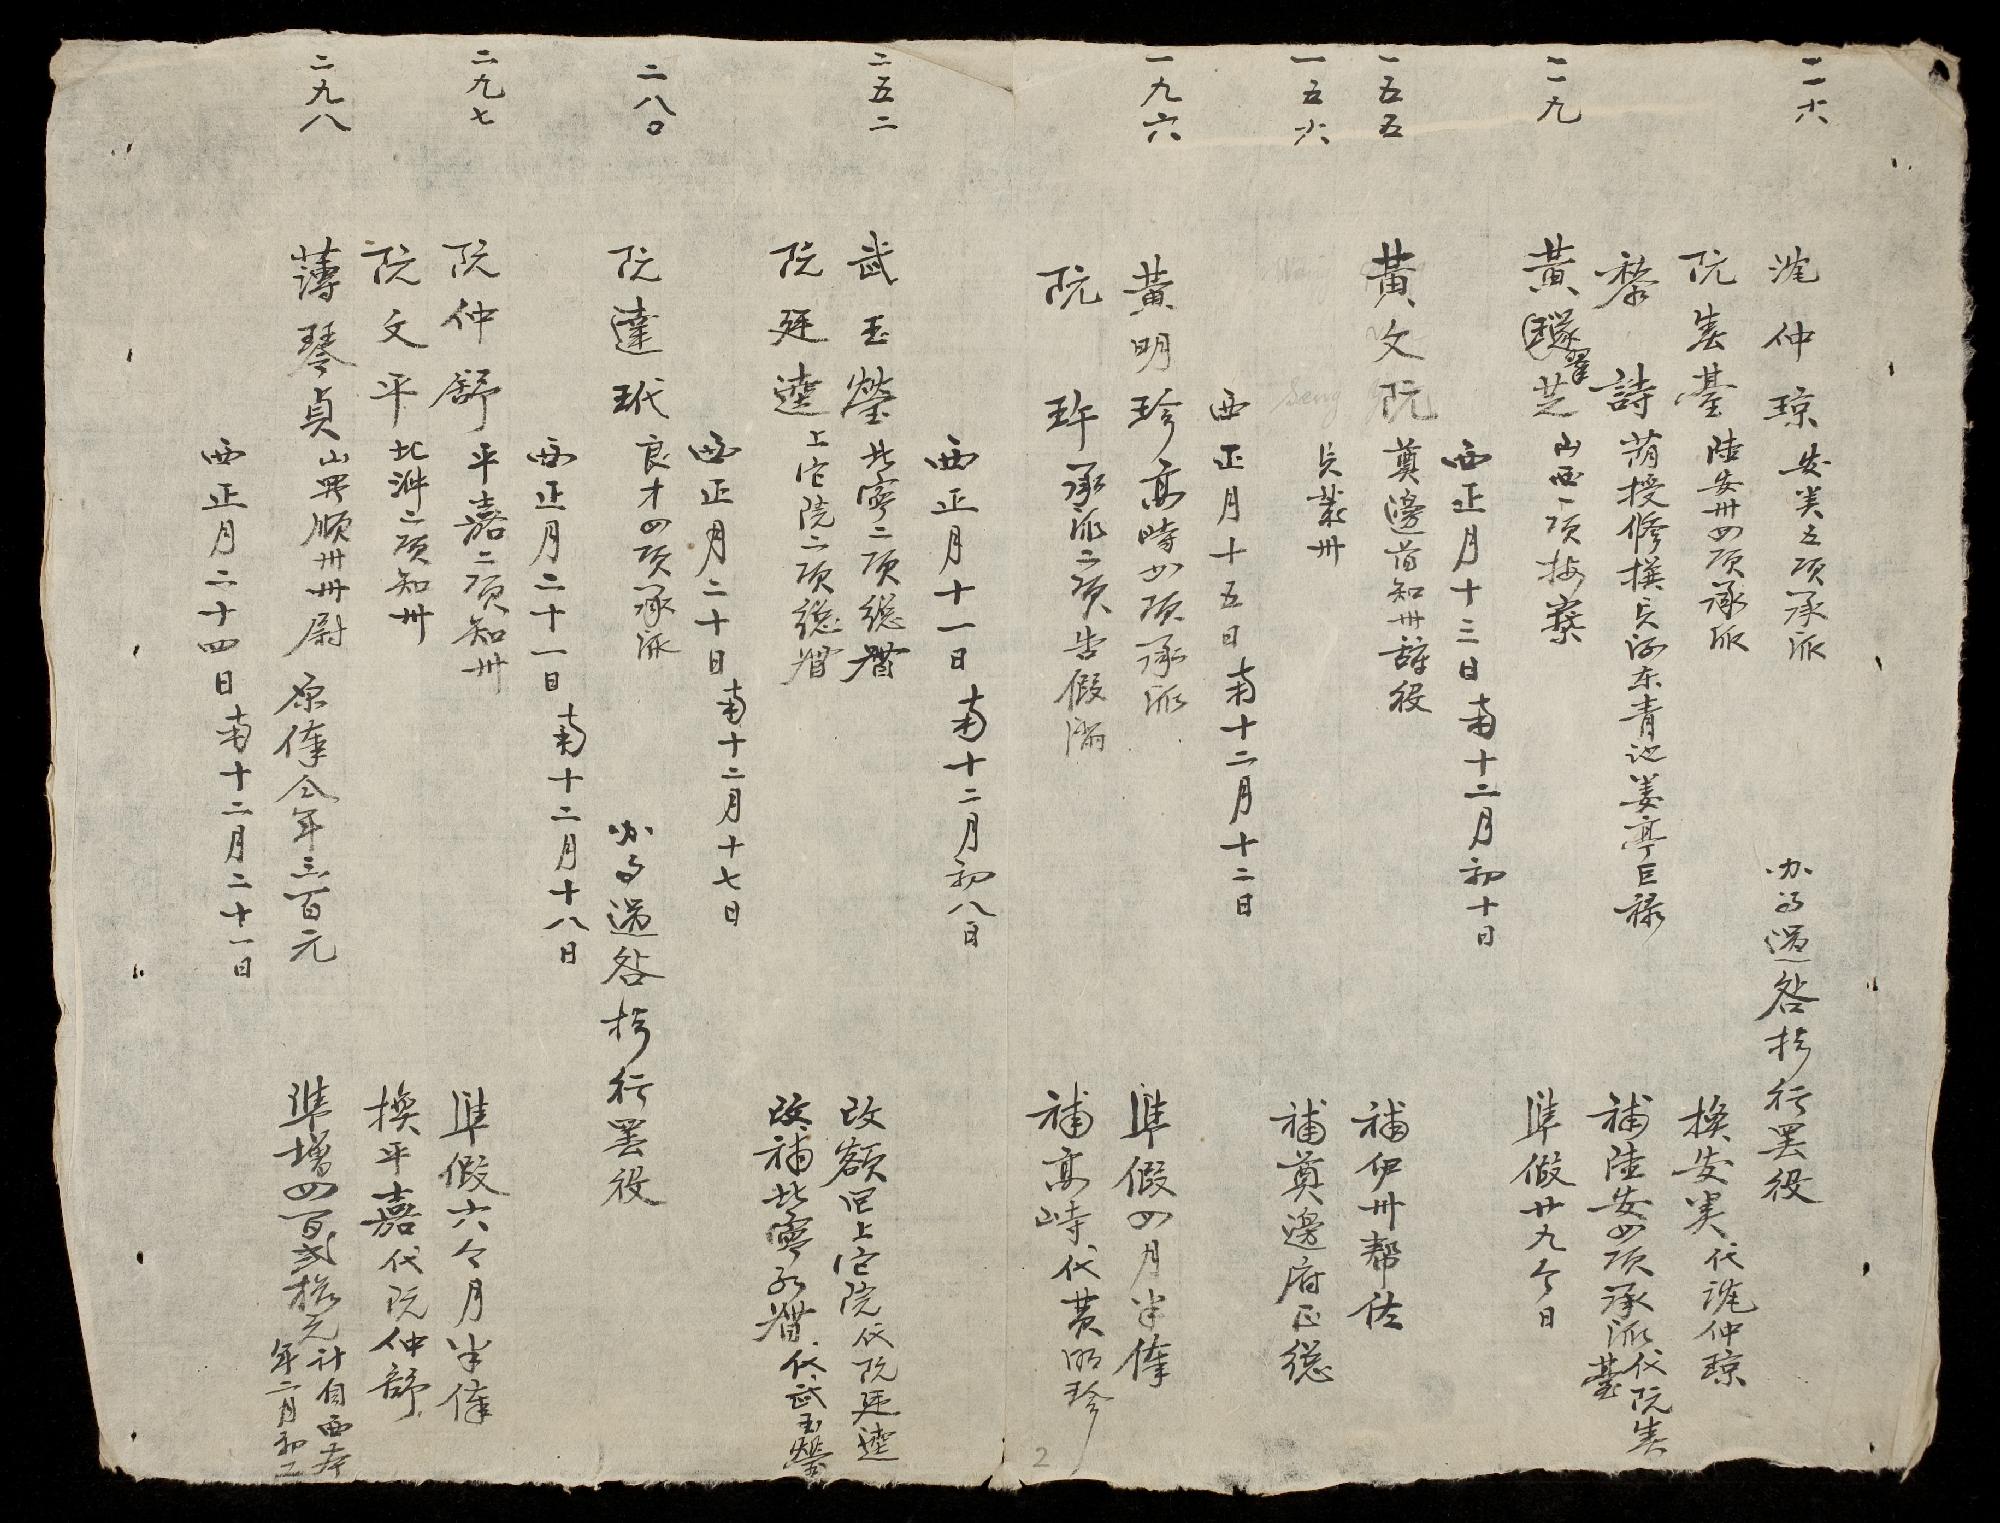 一一六
沱仲琼 安美五項承派 办为過咎扵行罢役
阮春臺 陸安卅四項承派 換安美代沱仲琼
黎詩 蒞授修撰兵河东青池姜亭巨禄 補陸安四項承派代阮春臺
一一九
黃 芝 山西一項按察 準假廿九个日
西正月十三日南十二月初十日
一五五
黃文阮 奠邊府知卅辞役 補伊卅帮佐
一五六
兵 卅 補奠邊府正總
西正月十五日南十二月十二日
一九六
黃明珍 高峙四項承派 準假四月半俸
阮玝 承派二項告假滿 補高峙代黃明珍
西正月十一日南十二月初八日
二五二
武玉瑩 北寧二項總督 改額囘上它院代阮廷達
阮廷達 上它院二項總督 改補北寧 督代武玉瑩
西正月二十日南十二月十七日
二八〇
阮達玳 良才四項承派 办为過咎扵行罢役
西正月二十一日南十二月十八日
二九七
阮仲舒 平嘉二項知卅 準假六个月半俸
阮文平 北 二項知卅 換平嘉代阮仲舒
二九八
薄琴貞 山羅順卅卅尉 原俸仝年三百元 準增四百贰拾元計自西本年二月初一
西正月二十四日南十二月二十一日
2